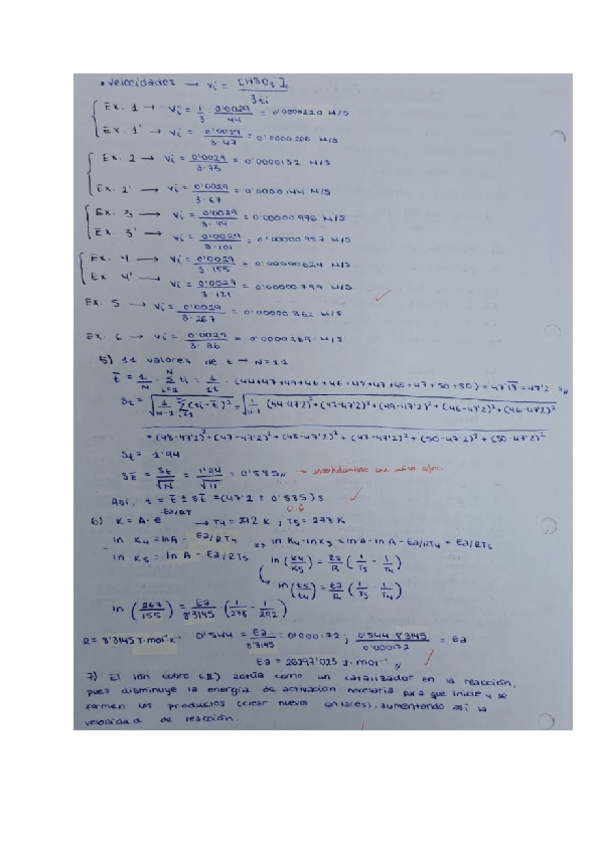 • velocidades → vi = [HSO3⁻]0 / 3ti
Ex. 1 → vi = 1/3 · 0'0029/44 = 0'0000220 M/s
Ex. 1' → vi = 0'0029/3·47 = 0'0000206 M/s
Ex. 2 → vi = 0'0029/3·73 = 0'0000132 M/s
Ex. 2' → vi = 0'0029/3·67 = 0'0000144 M/s
Ex. 3 → vi = 0'0029/3·99 = 0'00000976 M/s
Ex. 3' → vi = 0'0029/3·101 = 0'00000957 M/s
Ex. 4 → vi = 0'0029/3·155 = 0'00000624 M/s
Ex. 4' → vi = 0'0029/3·121 = 0'00000799 M/s
Ex. 5 → vi = 0'0029/3·267 = 0'00000362 M/s
Ex. 6 → vi = 0'0029/3·36 = 0'0000269 M/s
5) 11 valores de t → N=11
t̄ = 1/N · Σ ti = 1/11 · (44+47+49+46+46+48+47+48+47+50+50) = 47'18 = 47'2 s
St = √(1/(N-1) Σ(ti-t̄)²) = √(1/(11-1) (44-47'2)²+(47-47'2)²+(49-47'2)²+(46-47'2)²+(46-47'2)²
+(48-47'2)²+(47-47'2)²+(48-47'2)²+(47-47'2)²+(50-47'2)²+(50-47'2)²
St = 1'94
St̄ = St/√N = 1'94/√11 = 0'585
Así, t = t̄ ± St̄ = (47'2 ± 0'585) s
0.6
6) K = A·e^(-Ea/RT) → T4 = 292 K ; T5 = 278 K
ln K4 = ln A - Ea/RT4 => ln K4 - ln K5 = ln A - ln A - Ea/RT4 + Ea/RT5
ln K5 = ln A - Ea/RT5 ln(K4/K5) = Ea/R (1/T5 - 1/T4)
ln(t5/t4) = Ea/R (1/T5 - 1/T4)
ln(267/155) = Ea/8'3145 · (1/278 - 1/292)
R = 8'3145 J·mol⁻¹·K⁻¹ 0'544 = Ea/8'3145 · 0'000172 ; 0'544·8'3145/0'000172 = Ea
Ea = 26297'023 J·mol⁻¹
7) El ión cobre (II) actúa como un catalizador en la reacción,
pues disminuye la energía de activación necesaria para que inicie y se
formen los productos (crear nuevos enlaces), aumentando así la
velocidad de reacción.